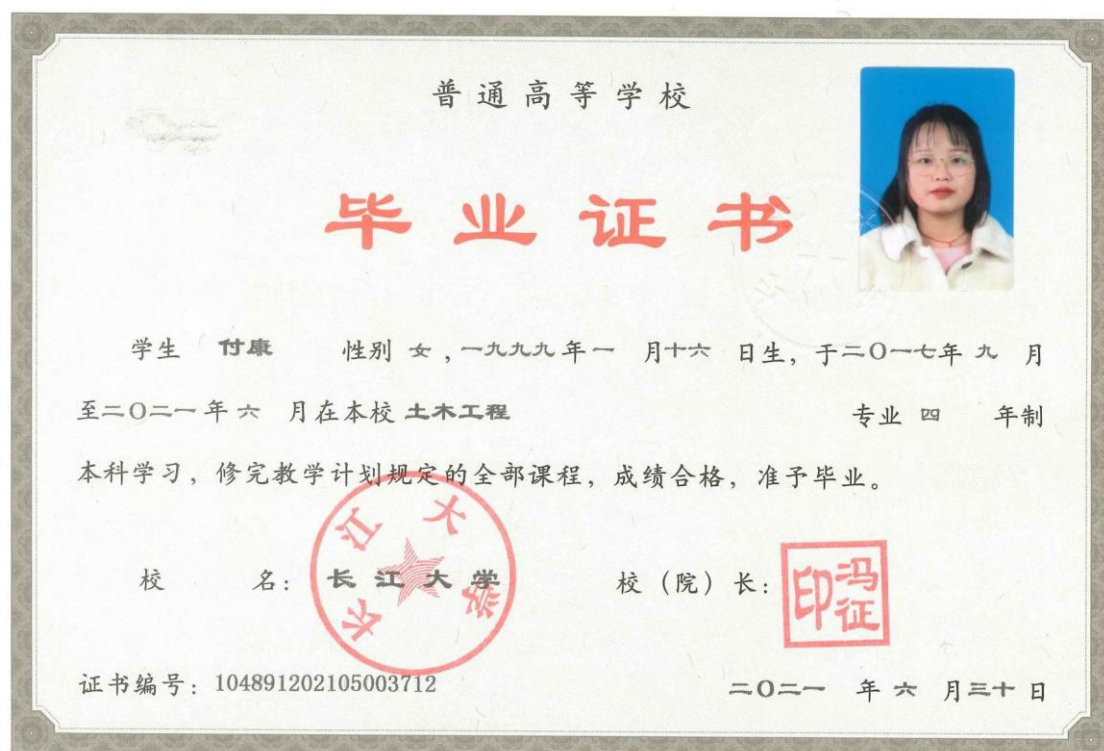 普通高等学校
毕业证书
学生 付康 性别 女，一九九九年一 月十六 日生，于二〇一七年 九 月
至二〇二一年 六 月在本校 土木工程 专业 四 年制
本科学习，修完教学计划规定的全部课程，成绩合格，准予毕业。
长江大学
校 名：长江大学 校（院）长：
冯征印
证书编号：104891202105003712 二〇二一 年 六 月三十 日